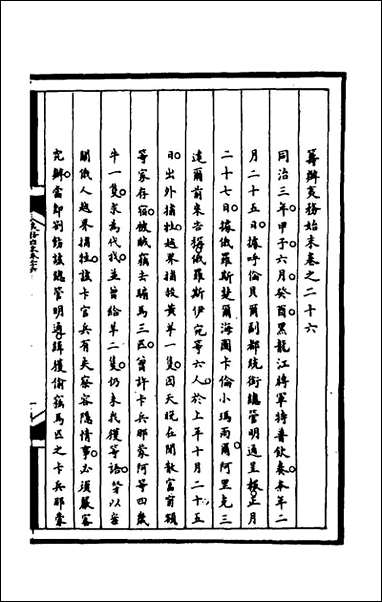 籌辦夷務始末卷之二十六
同治三年甲子六月癸酉黑龍江將軍特普欽奏本年二
月二十五日據呼倫貝爾副都統銜總管明通呈報正月
二十七日據俄羅斯楚爾海圖卡倫小瑪雨爾阿里克三
達爾前來告稱俄羅斯伊完等六人於上年十月二十五
日出外捕牲越界捕投黃羊一隻因天晚在閒散富甯額
等家存宿被賊竊去騸馬三匹曾許卡兵那蒙阿等四歲
牛一隻求為代找並曾給羊二隻仍未找獲等語等以案
關俄人越界捕牲該卡官兵有失察容隱情事必須嚴審
究辦當即劄飭該總管明通緝獲偷竊馬匹之卡兵那蒙